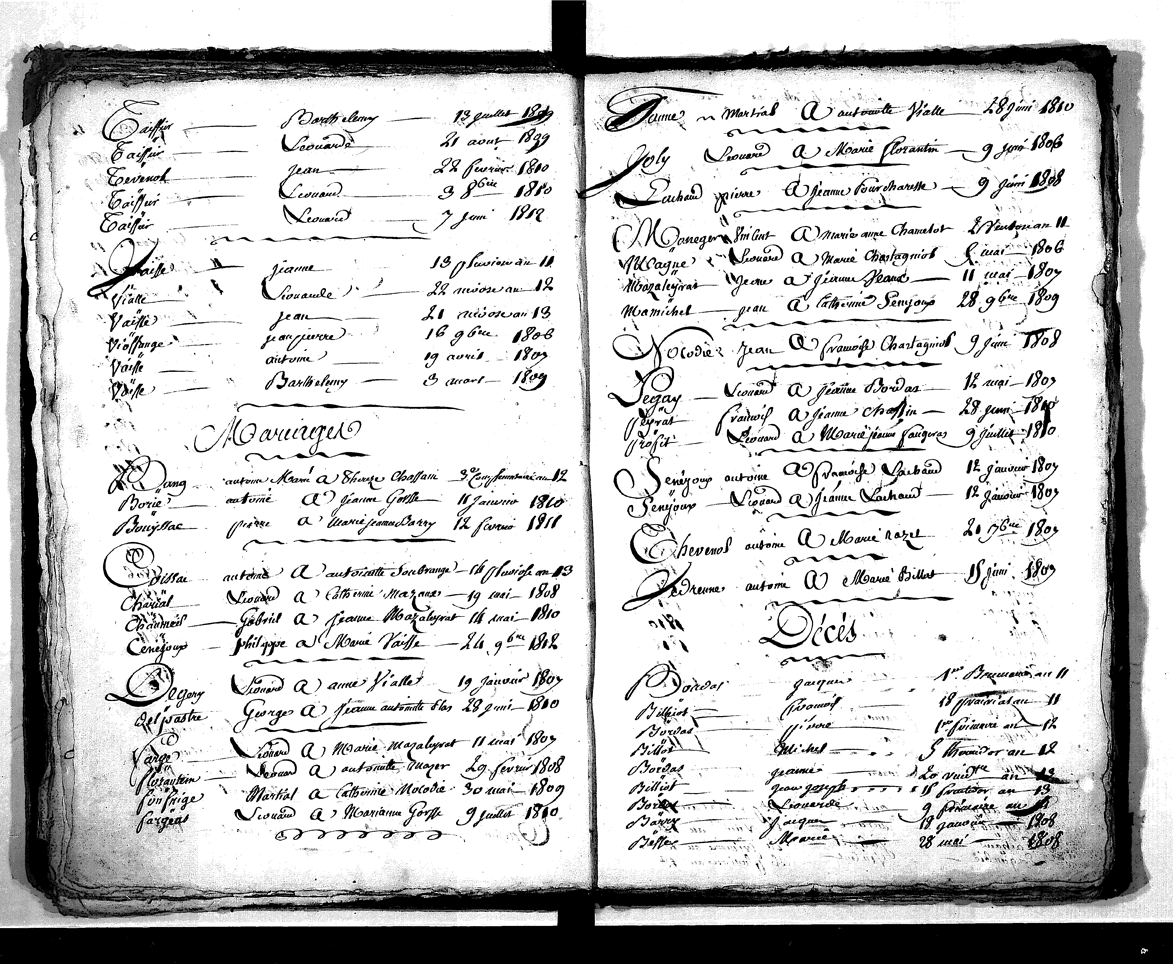 Taissur Barthelemy 13 juillet 1809
Taissur Leonarde 21 aout 1809
Tevenot jean 22 fevrier 1810
Taissur Leonard 3 8bre 1810
Taissur Leonard 7 juin 1812
Vaisse jeanne 13 pluviose an 11
Vialle Leonarde 22 nivose an 12
Vaisse jean 21 nivose an 13
Vioffange jean pierre 16 9bre 1806
Vaisse antoine 19 avril 1807
Vaisse Barthelemy 3 mars 1809
Mariages
antoine Marié a Thereze Chassain 3e Complementaire an 12
Borie antoine a jeanne Gorsse 11 janvier 1810
Bouyssac pierre a Marie jeanne Barry 12 fevrier 1811
antoine a antoinette Soubrange 14 pluviose an 13
Charial Leonard a Catherine Mazaux 19 mai 1808
Chaumeil Gabriel a jeanne Mazaleyrat 14 mai 1810
Cenejoux philippe a Marie Vaisse 24 9bre 1812
Degery Leonard a anne Vialle 19 janvier 1807
Delpastre George a jeanne antoinette 28 juin 1810
Farge Leonard a Marie Mazaleyrat 11 mai 1807
florantin Leonard a antoinette Mazer 29 fevrier 1808
fonfrige Martial a Catherine Nolodie 30 mai 1809
fargeas Leonard a Marianne Gorsse 9 juillet 1810
Martial a antoinette Vialle 28 juin 1810
Joly Leonard a Marie florantin 9 juin 1806
Lachaud pierre a jeanne Fourcharesse 9 juin 1808
Maneger Vincent a Marie anne Chamelot 2 Ventose an 11
Maque Leonard a Marie Chastagniol mai 1806
Mazaleyrat Jean a jeanne 11 mai 1807
Mamichel jean a Catherine Senejoux 28 9bre 1809
Nolodie jean a francoise Chastagniol 9 juin 1808
Pegay Leonard a jeanne Bordas 12 mai 1807
peyrat francois a jeanne Chassin 28 juin 1810
profit Leonard a Marie jeanne faugeras 9 juillet 1810
Senejoux antoine a francoise Lachaud 12 janvier 1807
Senejoux Leonard a jeanne Lachaud 12 janvier 1807
Thevenot antoine a Marie nazet 21 1807
Vedrenne antoine a Marie Billot 15 juin 1807
Décés
Bordas jacques 1er Brumaire an 11
Billiot francois 18 prairial an 11
Bordas pierre 1er frimaire an 12
Billot Michel 5 thermidor an 12
Bordas jeanne 20 vend.re an 13
Billiot jean joseph 16 fructidor an 13
Leonarde 9 frimaire an
Barry jacques 19 janvier 1808
Marie 28 mai 1808